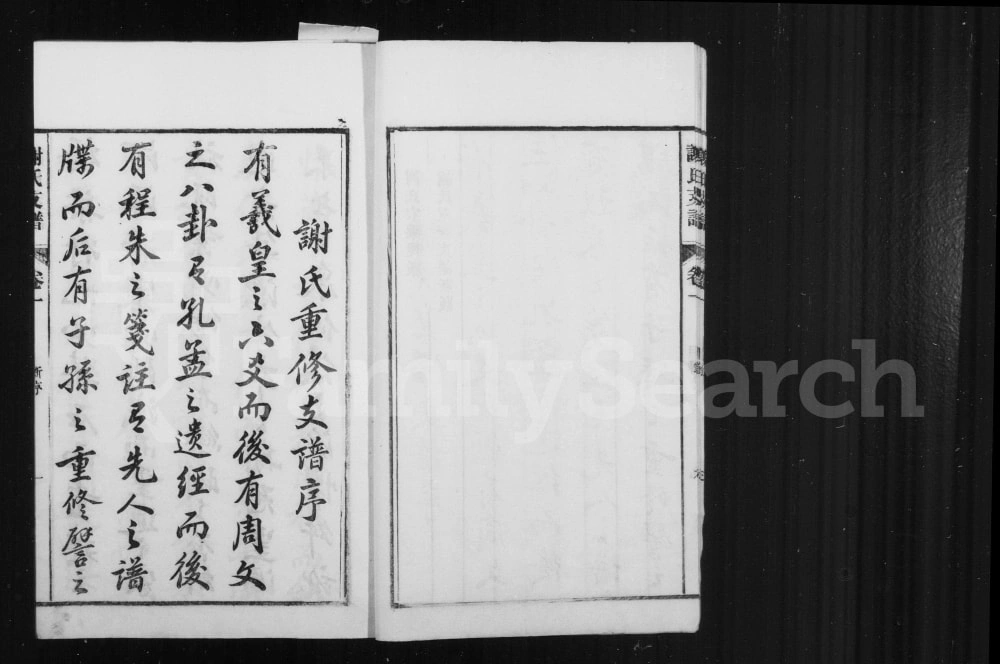 謝氏重修支譜序
有羲皇之六爻而後有周文
之八卦有孔孟之遺經而後
有程朱之箋註有先人之譜
牒而后有子孫之重修譬之
謝氏支譜
卷一
新序
一
謝氏支譜
卷一
FamilySearch